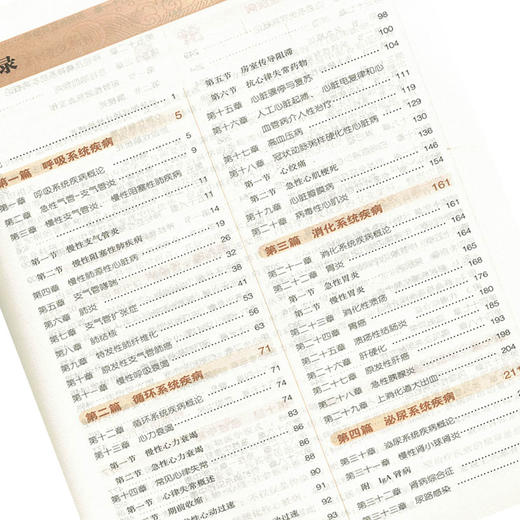 录
1
第一篇 呼吸系统疾病 5
第一章 呼吸系统疾病概论 5
第二章 急性气管-支气管炎 9
第三章 慢性支气管炎、慢性阻塞性肺疾病 11
第一节 慢性支气管炎 11
第二节 慢性阻塞性肺疾病 14
第四章 慢性肺源性心脏病 19
第五章 支气管哮喘 26
第六章 肺炎 32
第七章 支气管扩张症 38
第八章 肺结核 41
第九章 特发性肺纤维化 53
第十章 原发性支气管肺癌 56
第十一章 慢性呼吸衰竭 63
第二篇 循环系统疾病 71
第十二章 循环系统疾病概论 71
第十三章 心力衰竭 74
第一节 慢性心力衰竭 74
第二节 急性心力衰竭 83
第十四章 常见心律失常 86
第一节 心律失常概述 86
第二节 期前收缩 88
性心动过速 90
92
93
98
第五节 房室传导阻滞 100
第六节 抗心律失常药物 104
第十五章 心脏骤停与复苏 106
第十六章 人工心脏起搏、心脏电复律和心
血管病介入性治疗 111
第十七章 高血压病 119
第十八章 冠状动脉粥样硬化性心脏病 129
第一节 心绞痛 130
第二节 急性心肌梗死 136
第十九章 心脏瓣膜病 146
第二十章 病毒性心肌炎 154
第三篇 消化系统疾病 161
第二十一章 消化系统疾病概论 161
第二十二章 胃炎 164
第一节 急性胃炎 164
第二节 慢性胃炎 168
第二十三章 消化性溃疡 176
第二十四章 胃癌 180
第二十五章 溃疡性结肠炎 185
第二十六章 肝硬化 187
第二十七章 原发性肝癌 193
第二十八章 急性胰腺炎 198
第二十九章 上消化道大出血 204
第四篇 泌尿系统疾病 211
第三十章 泌尿系统疾病概论
第三十一章 慢性肾小球肾炎
附 IgA肾病
第三十二章 肾病综合征
第三十三章 尿路感染